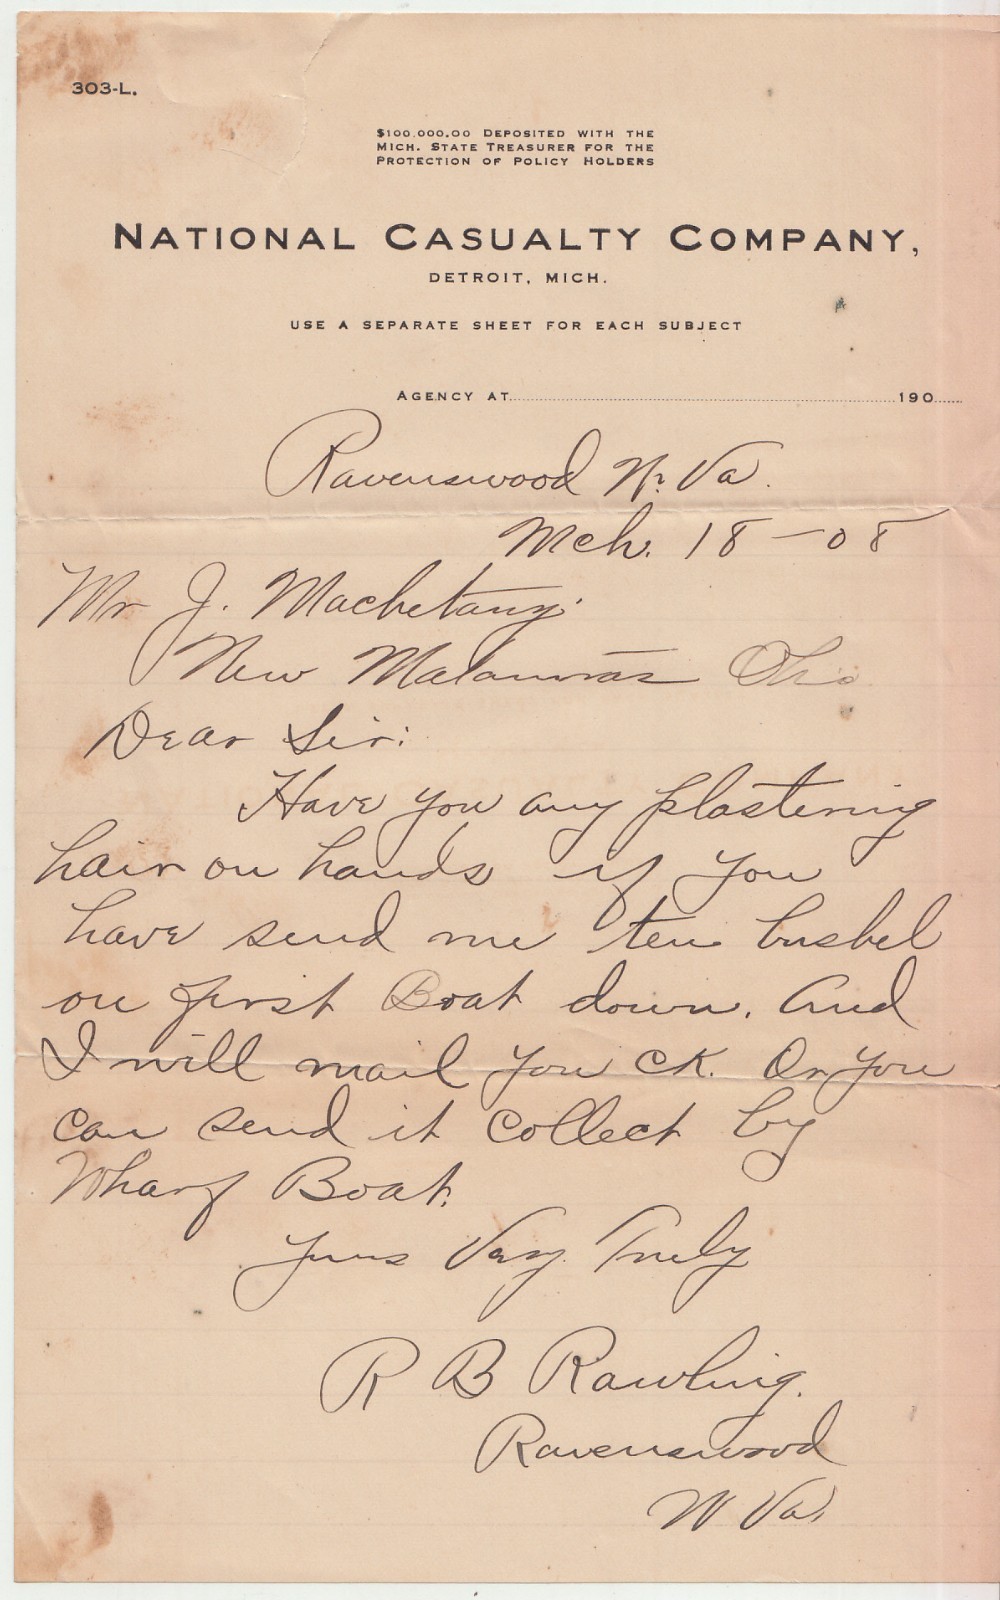 303-L.
$100,000.00 DEPOSITED WITH THE
MICH. STATE TREASURER FOR THE
PROTECTION OF POLICY HOLDERS
NATIONAL CASUALTY COMPANY,
DETROIT, MICH.
USE A SEPARATE SHEET FOR EACH SUBJECT
AGENCY AT 190
Ravenswood W. Va.
Mch. 18-08
Mr J. Machetanz
New Matamoras Ohio
Dear Sir:
Have you any plastering
hair on hands if you
have send me ten bushel
on first Boat down. And
I will mail you CK. Or you
can send it collect by
Wharf Boat.
Yours Very Truly
R B Rawling.
Ravenswood
W Va.